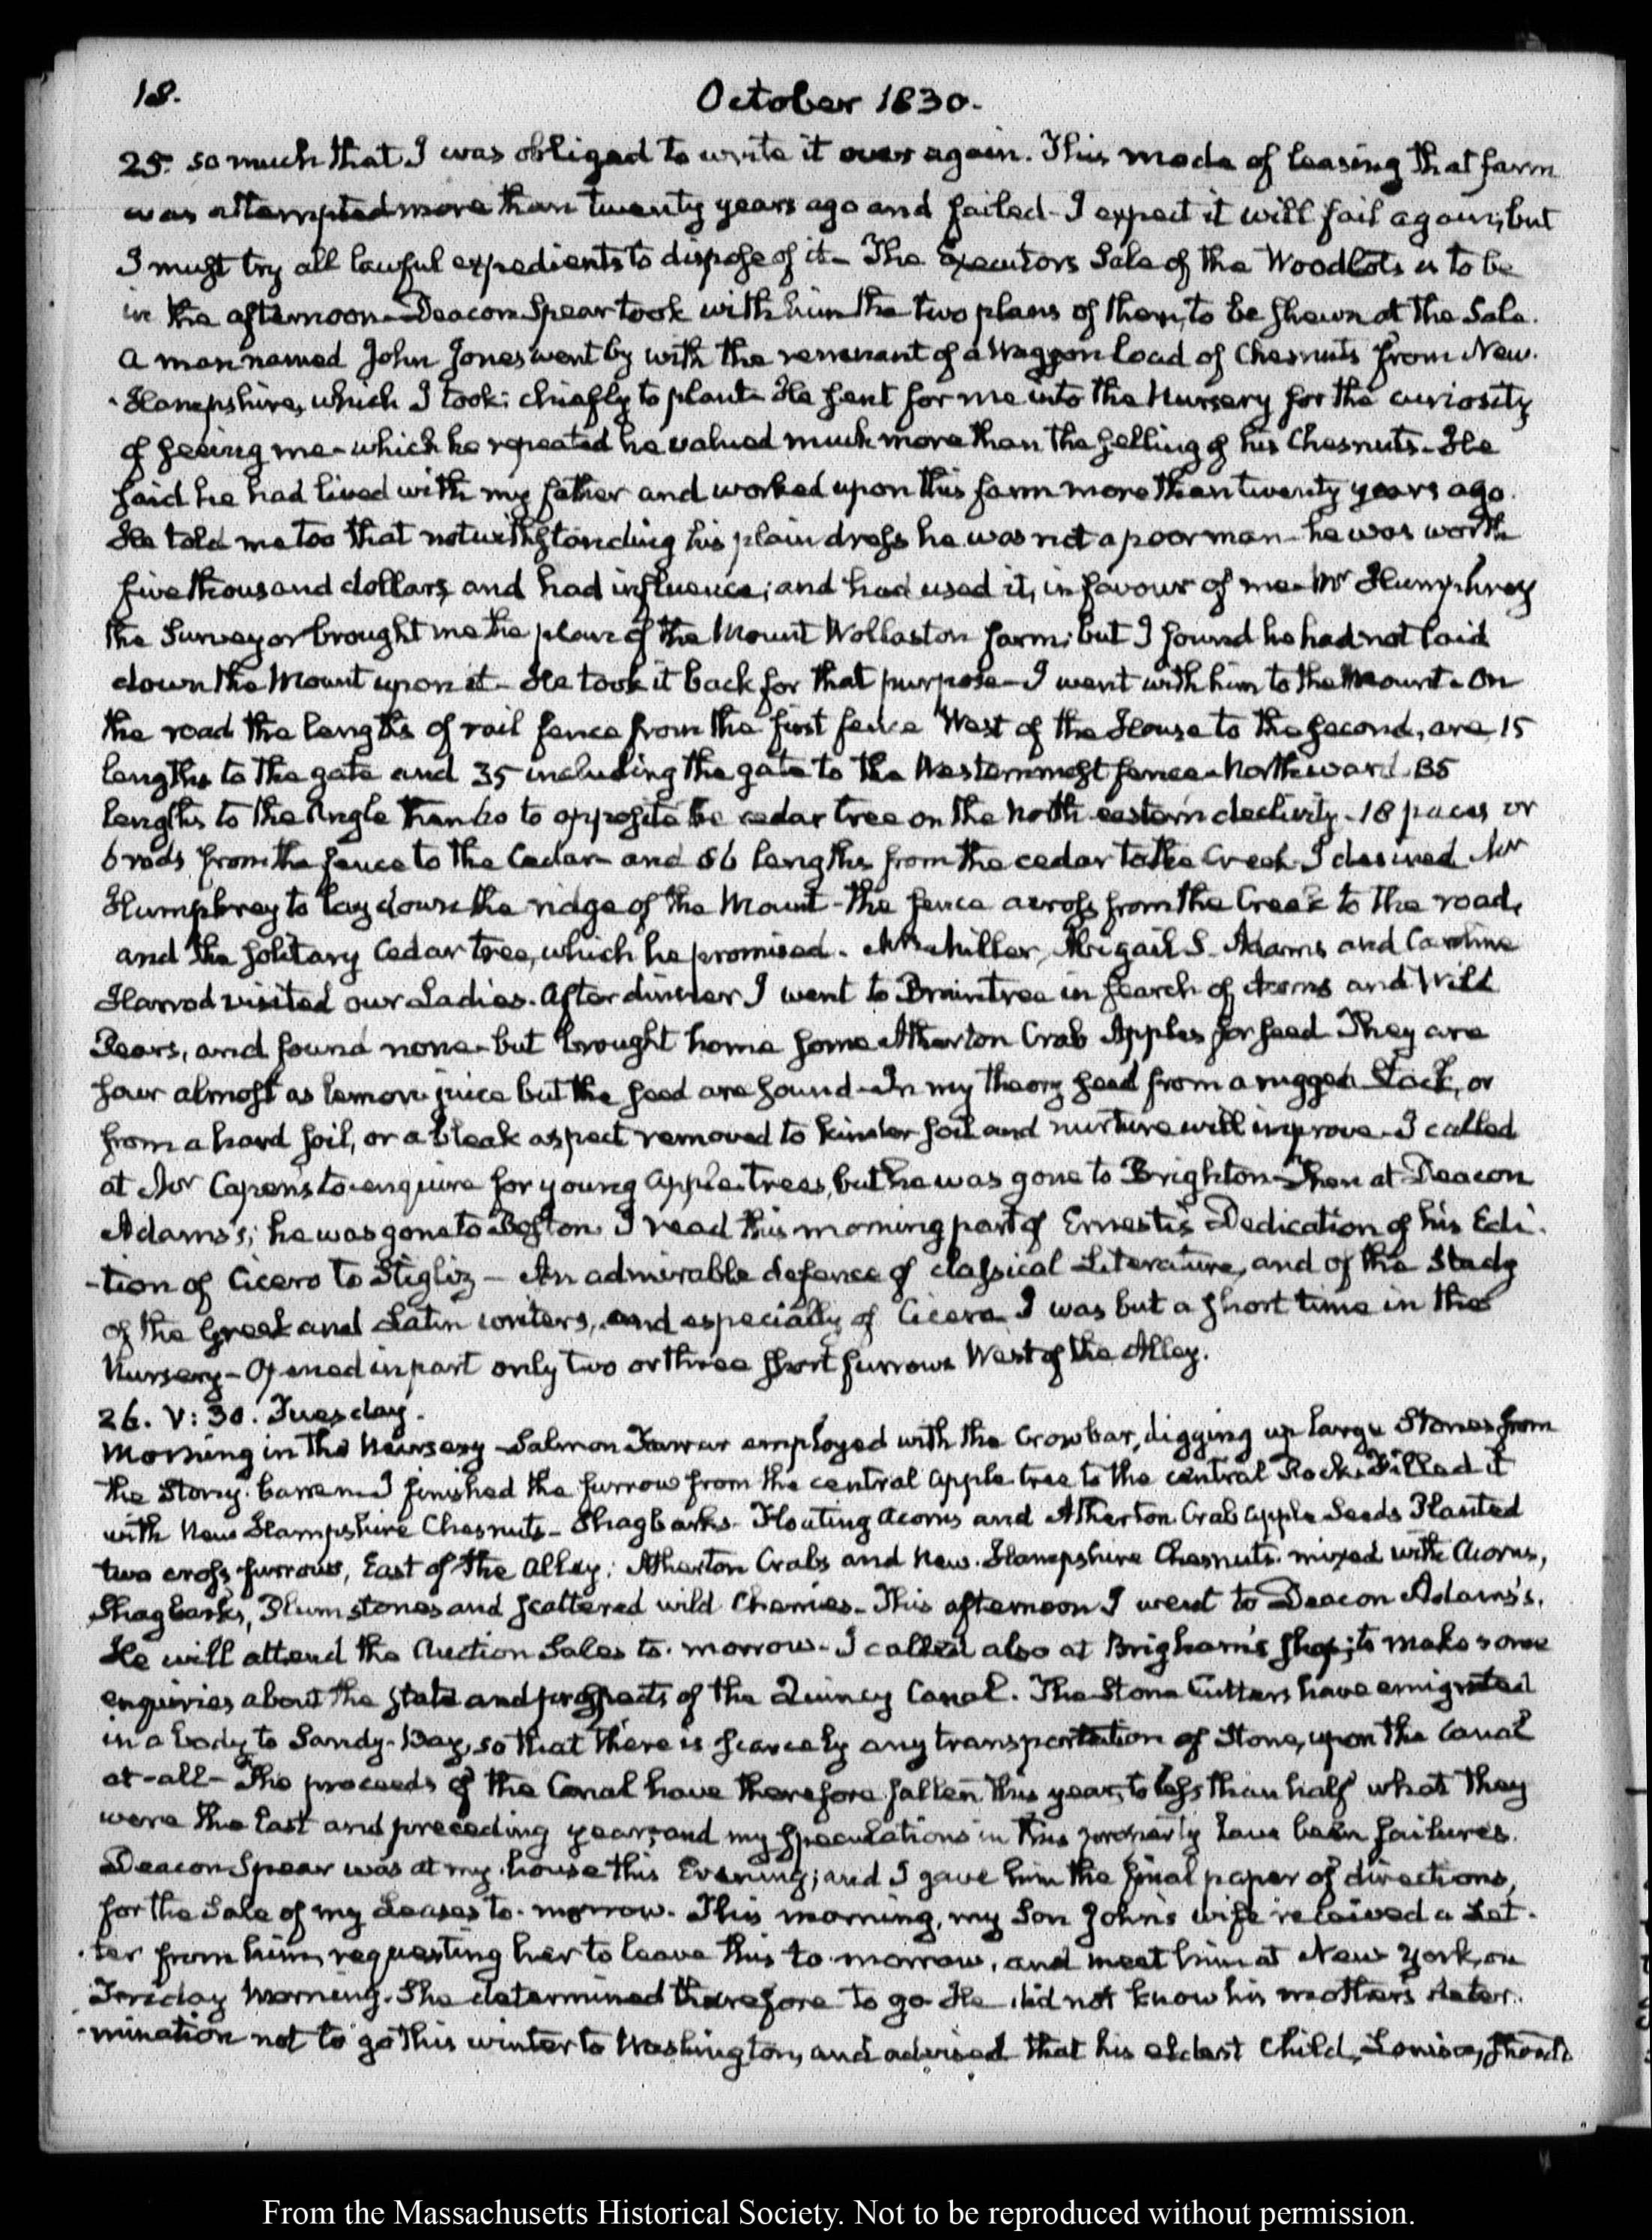 18.
October 1830.
25. so much that I was obliged to write it over again. This mode of leasing that farm
was attempted more than twenty years ago and failed - I expect it will fail again; but
I must try all lawful expedients to dispose of it - The Executors Sale of the Woodlots is to be
in the afternoon - Deacon Spear took with him the two plans of them, to be shewn at the Sale.
A man named John Jones went by with the remnant of a Waggon load of Chesnuts from New-
-Hampshire, which I took; chiefly to plant - He sent for me into the Nursery for the curiosity
of seeing me - which he repeated he valued much more than the selling of his Chesnuts - He
said he had lived with my father and worked upon this farm more than twenty years ago.
He told me too that notwithstanding his plain dress he was not a poor man - he was worth
five thousand dollars, and had influence; and had used it, in favour of me - Mr Humphrey
the Surveyor brought me the plan of the Mount Wollaston farm; but I found he had not laid
down the Mount upon it - He took it back for that purpose - I went with him to the Mount - On
the road the lengths of rail fence from the first fence West of the House to the second, are 15
lengths to the gate and 35 including the gate to the Westernmost fence - Northward 35
lengths to the Angle then 60 to opposite the cedar tree on the North eastern declivity - 18 paces or
6 rods from the fence to the Cedar - and 56 lengths from the cedar to the Creek - I desired Mr
Humphrey to lay down the ridge of the Mount - the fence across from the Creek to the road,
and the solitary Cedar tree, which he promised. Mrs Miller, Abigail S. Adams and Caroline
Harrod visited our Ladies. After dinner I went to Braintree in search of Acorns and Wild
Pears, and found none - but brought home some Atherton Crab Apples for seed They are
sour almost as lemon juice but the seed are sound - In my theory seed from a rugged Stock, or
from a hard soil, or a bleak aspect removed to kinder soil and nurture will improve - I called
at Mr Capen's to enquire for young apple trees, but he was gone to Brighton - Then at Deacon
Adams's; he was gone to Boston. I read this morning part of Ernesti's Dedication of his Edi-
-tion of Cicero to Stigliz - An admirable defence of classical Literature, and of the Study
of the Greek and Latin writers, and especially of Cicero I was but a short time in the
Nursery - Opened in part only two or three short furrows West of the Alley.
26. V:30. Tuesday.
Morning in the Nursery - Salmon Farrar employed with the Crowbar, digging up large Stones from
the Stony barren - I finished the furrow from the central apple-tree to the central Rock - Filled it
with New Hampshire Chesnuts - Shagbarks - Floating acorns and Atherton Crab apple Seeds Planted
two cross furrows, East of the Alley; Atherton Crabs and New-Hampshire Chesnuts mixed with Acorns,
Shagbarks, Plum stones and scattered wild Cherries - This afternoon I went to Deacon Adams's.
He will attend the Auction Sales to-morrow - I called also at Brigham's shop; to make some
enquiries about the state and prospects of the Quincy Canal. The Stone Cutters have emigrated
in a body to Sandy-Bay, so that there is scarcely any transportation of Stone, upon the Canal
at-all - The proceeds of the Canal have therefore fallen this year, to less than half what they
were the last and preceding years; and my speculations in this property have been failures.
Deacon Spear was at my house this Evening; and I gave him the final paper of directions,
for the Sale of my Leases to-morrow. This morning, my Son John's wife received a Let-
-ter from him, requesting her to leave this to morrow, and meet him at New York, on
Friday Morning. She determined therefore to go - He did not know his mother's deter-
-mination not to go this winter to Washington, and advised that his eldest Child, Louisa, should
From the Massachusetts Historical Society. Not to be reproduced without permission.